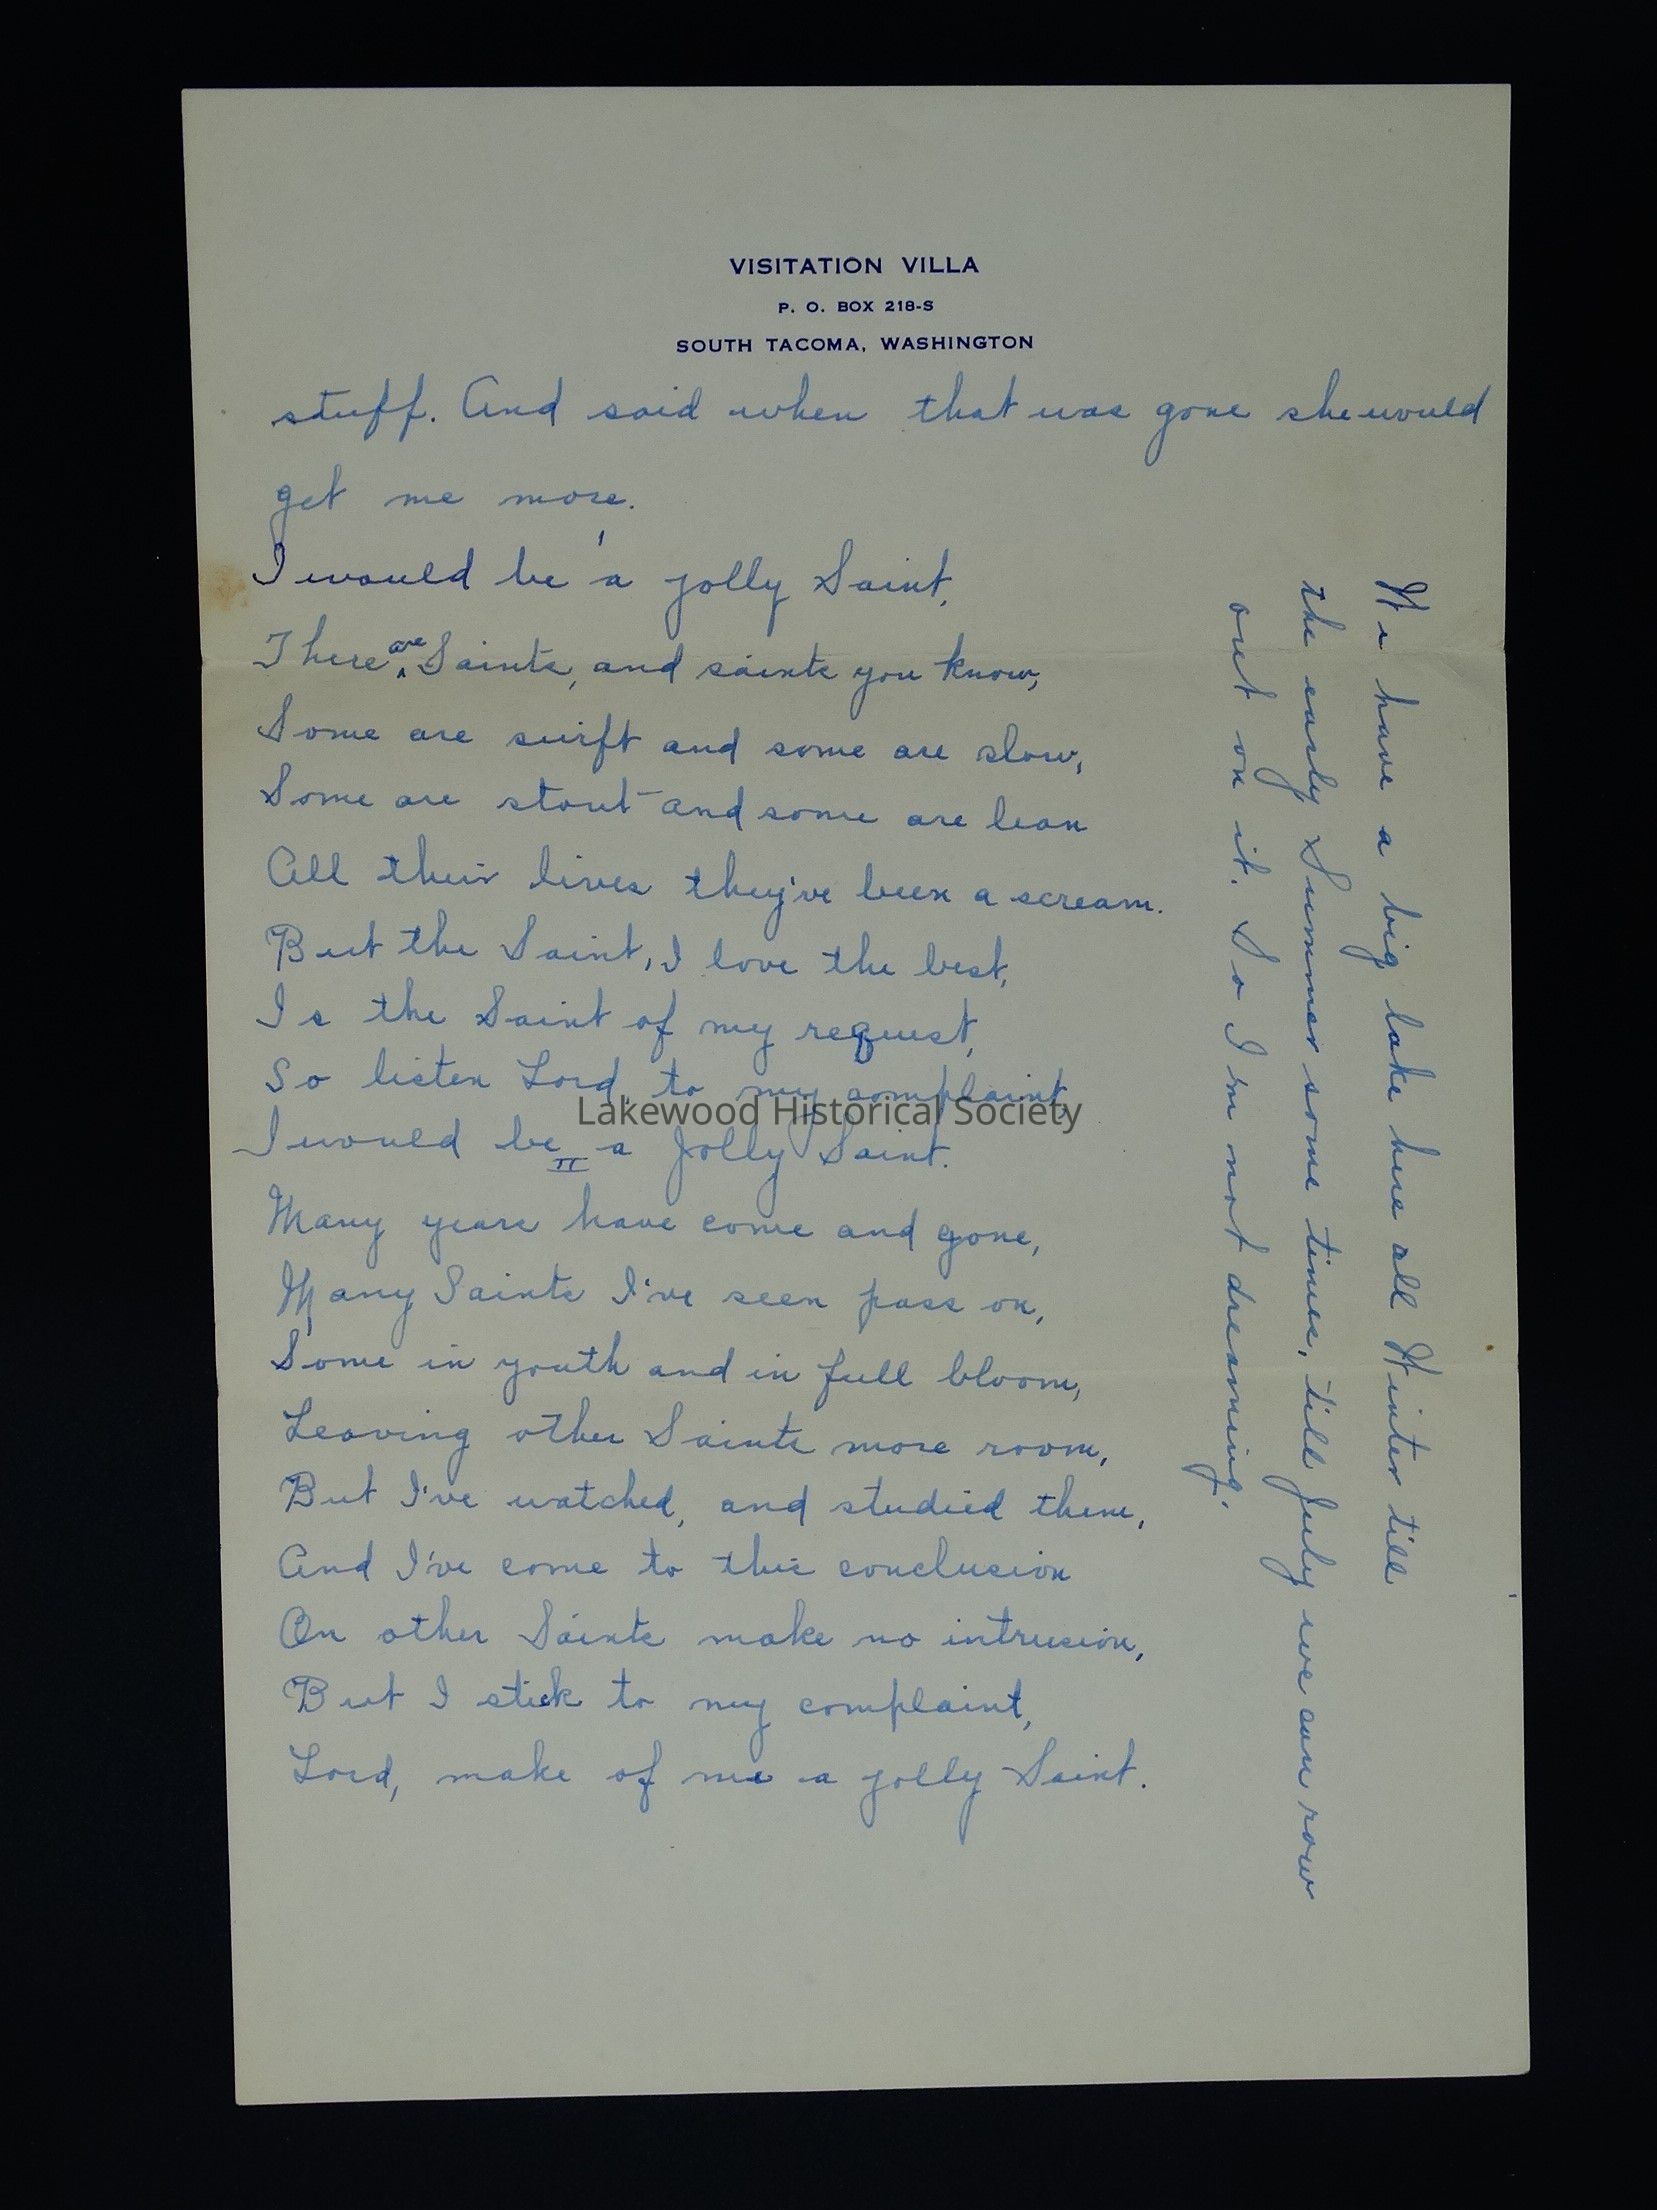 VISITATION VILLA
P. O. BOX 218-S
SOUTH TACOMA, WASHINGTON
stuff. And said when that was gone she would
get me more.
I
I would be a jolly Saint,
There are Saints, and saints you know,
Some are swift and some are slow,
Some are stout and some are lean
All their lives they've been a scream.
But the Saint, I love the best,
Is the Saint of my request,
So listen Lord, to my complaint,
I would be a Jolly Saint.
II
Many years have come and gone,
Many Saints I've seen pass on,
Some in youth and in full bloom,
Leaving other Saints more room,
But I've watched, and studied them,
And I've come to this conclusion
On other Saints make no intrusion,
But I stick to my complaint,
Lord, make of me a jolly Saint.
We have a big lake here all Winter till
the early Summer some times, till July we can row
out on it. So I'm not dreaming.
Lakewood Historical Society